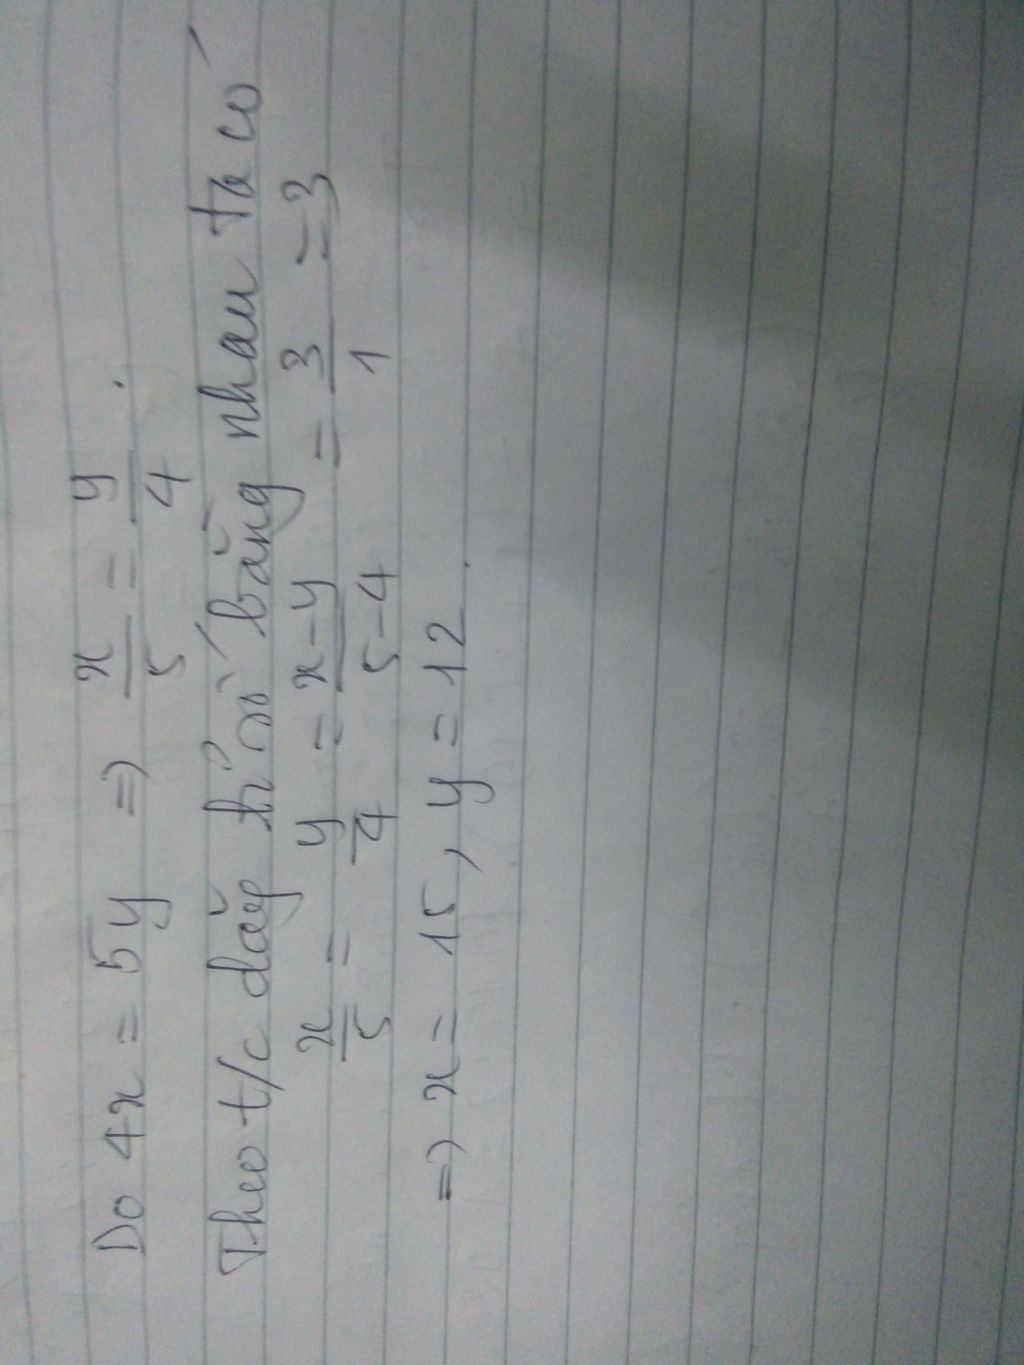 Do 4x = 5y => x/5 = y/4 .
Theo t/c dãy tỉ số bằng nhau ta có
x/5 = y/4 = x-y/5-4 = 3/1 = 3
=> x = 15, y = 12.